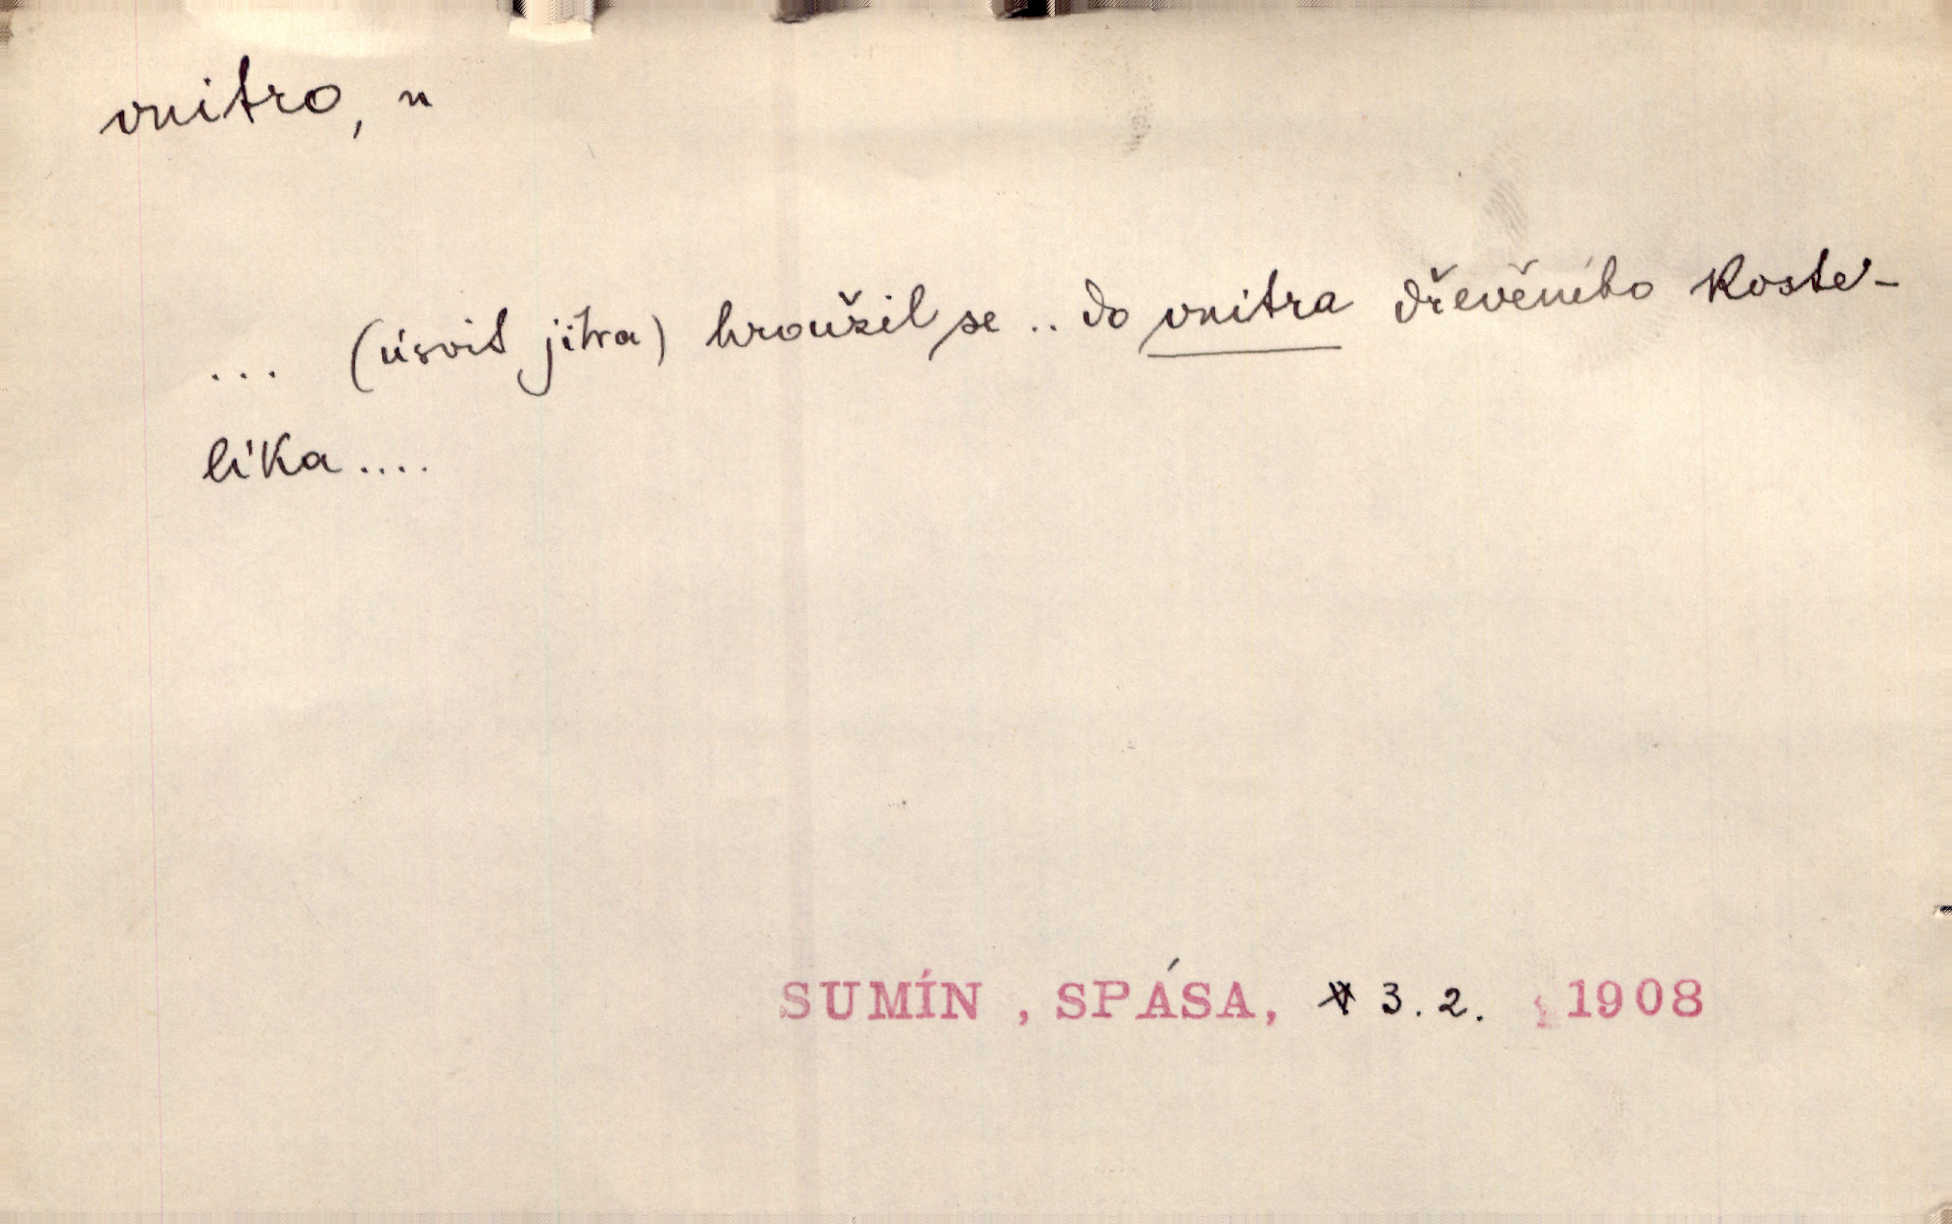 vnitro, n
... (úsvit jitra) hroužil se .. do vnitra dřevěného koste-
líka ....
SUMÍN , SPÁSA, 3. 2. 1908